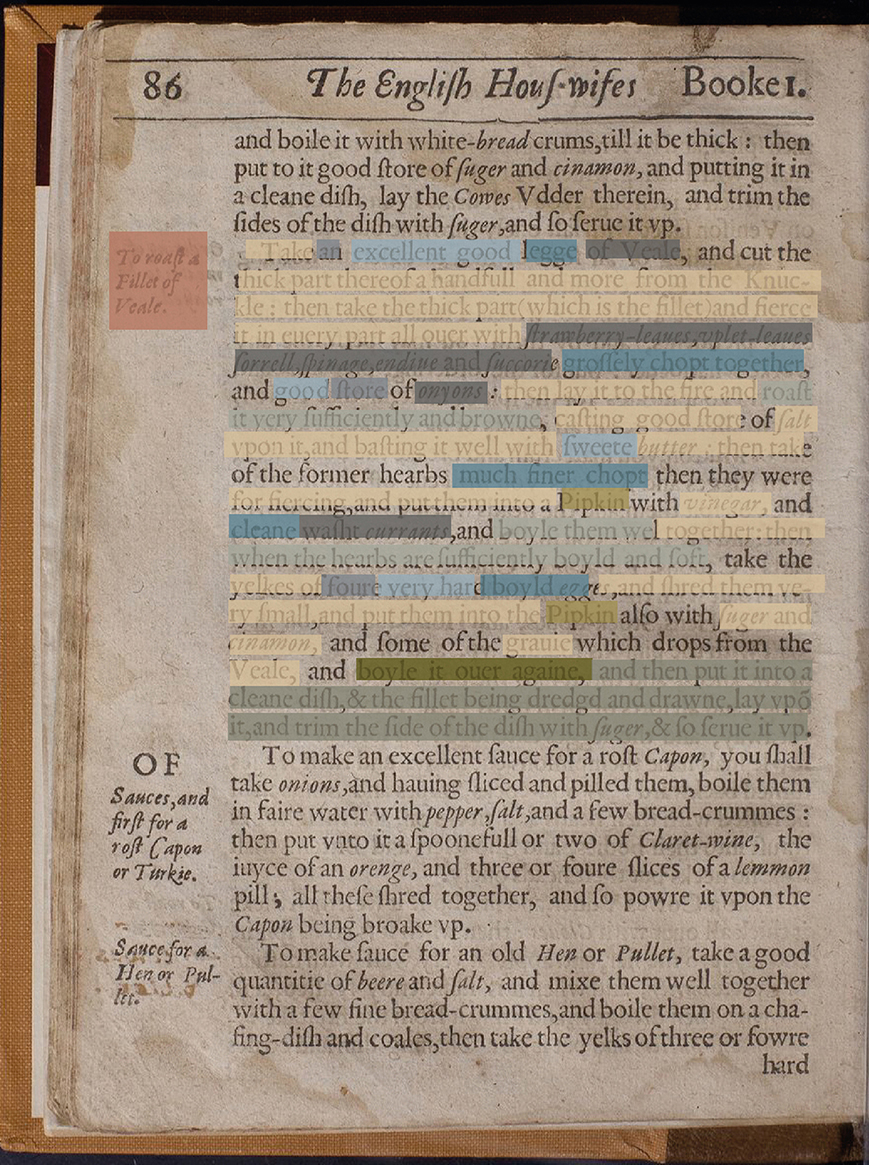 86 The Engliſh Houſ-wifes Booke 1.
and boile it with white-bread crums,till it be thick : then
put to it good ſtore of ſuger and cinamon, and putting it in
a cleane diſh, lay the Cowes Vdder therein, and trim the
ſides of the diſh with ſuger,and ſo ſerue it vp.
To roaſt a
Fillet of
Veale.
Take an excellent good legge of Veale, and cut the
thick part thereof a handfull and more from the Knuc-
kle : then take the thick part(which is the fillet)and fierce
it in euery part all ouer with ſtrawberry-leaues,vplet-leaues
ſorrell,ſpinage,endiue and ſuccorie groſſely chopt together,
and good ſtore of onyons : then lay it to the fire and roaſt
it very ſufficiently and browne, caſting good ſtore of ſalt
vpon it,and baſting it well with ſweete butter : then take
of the former hearbs much finer chopt then they were
for fiercing,and put them into a Pipkin with vinegar, and
cleane waſht currants,and boyle them wel together: then
when the hearbs are ſufficiently boyld and ſoft, take the
yelkes of foure very hard boyld egges,and ſhred them ve-
ry ſmall,and put them into the Pipkin alſo with ſuger and
cinamon, and ſome of the grauie which drops from the
Veale, and boyle it ouer againe, and then put it into a
cleane diſh,& the fillet being dredgd and drawne,lay vpõ
it,and trim the ſide of the diſh with ſuger,& ſo ſerue it vp.
OF
Sauces,and
firſt for a
roſt Capon
or Turkie.
To make an excellent ſauce for a roſt Capon, you ſhall
take onions,and hauing ſliced and pilled them, boile them
in faire water with pepper,ſalt,and a few bread-crummes :
then put vnto it a ſpoonefull or two of Claret-wine, the
iuyce of an orenge, and three or foure ſlices of a lemmon
pill ; all theſe ſhred together, and ſo powre it vpon the
Capon being broake vp.
Sauce for a
Hen or Pul-
let.
To make ſauce for an old Hen or Pullet, take a good
quantitie of beere and ſalt, and mixe them well together
with a few fine bread-crummes,and boile them on a cha-
fing-diſh and coales,then take the yelks of three or fowre
hard